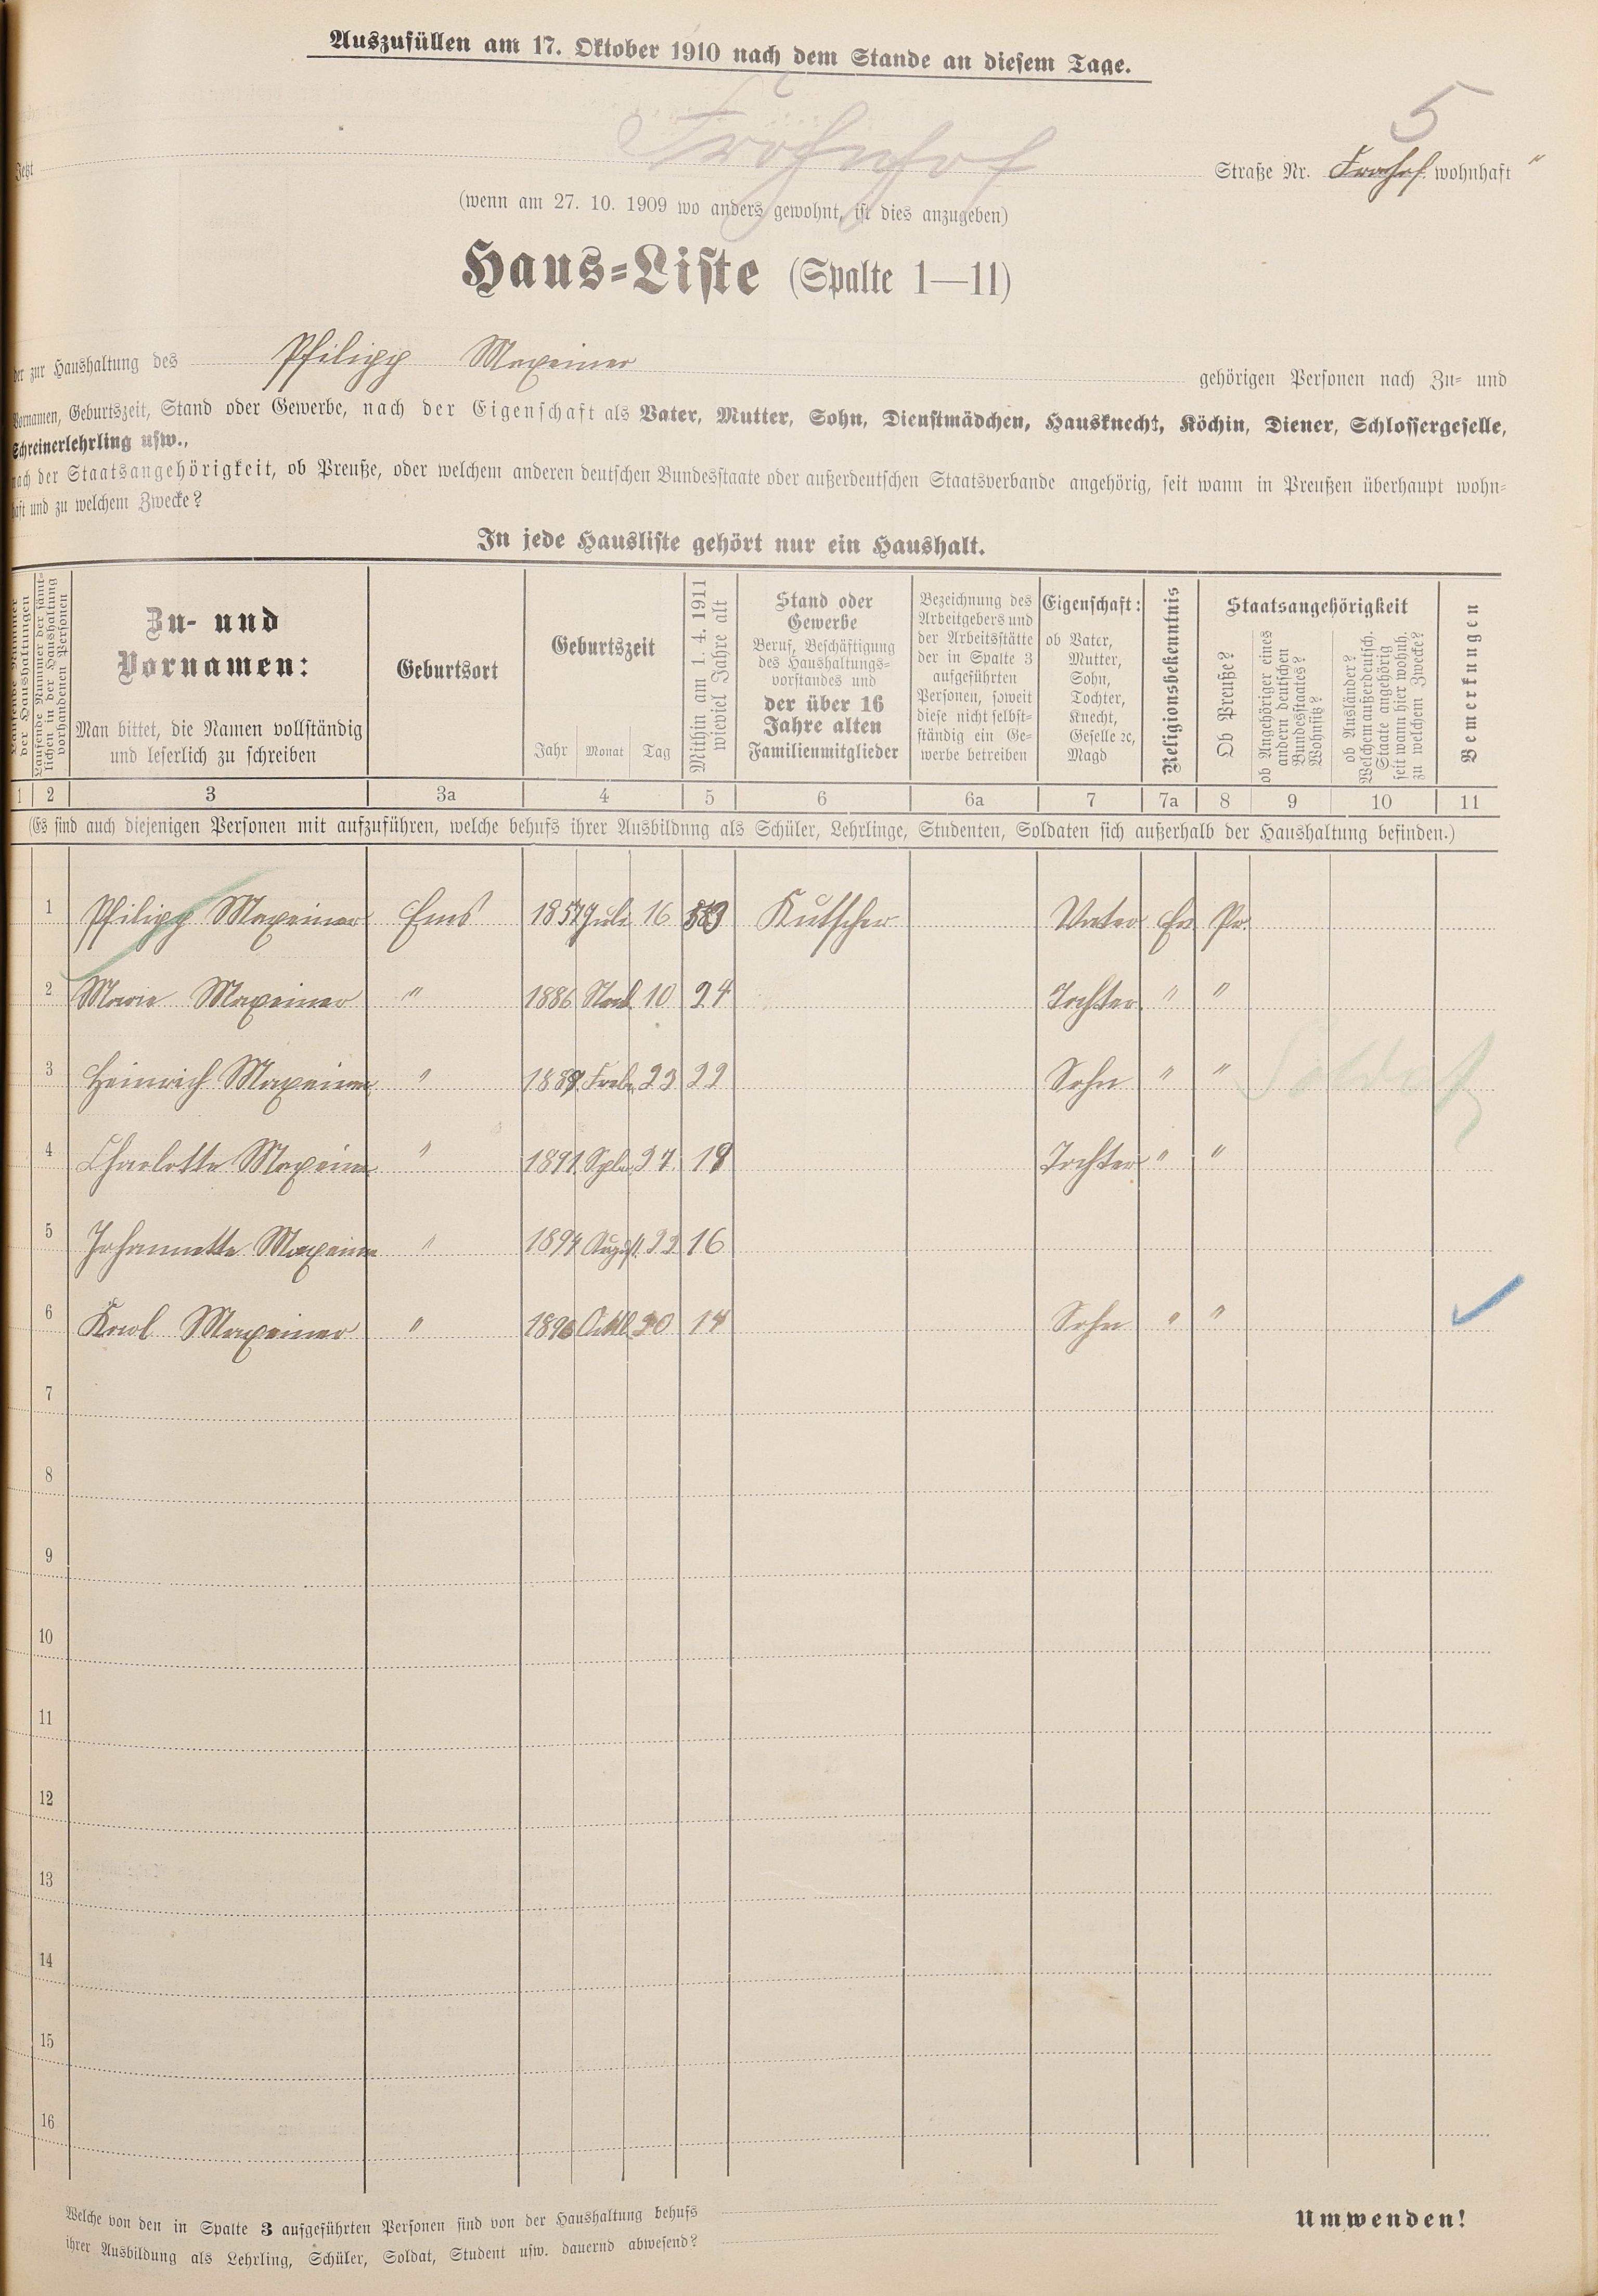 Auszufüllen am 17. Oktober 1910 nach dem Stande an diesem Tage.
5
Jetzt Frohnhof Straße Nr. Fronhof wohnhaft "
(wenn am 27. 10. 1909 wo anders gewohnt, ist dies anzugeben)
Haus=Liste (Spalte 1—11)
der zur Haushaltung des Philipp Maxeiner gehörigen Personen nach Zu= und
Vornamen, Geburtszeit, Stand oder Gewerbe, nach der Eigenschaft als Vater, Mutter, Sohn, Dienstmädchen, Hausknecht, Köchin, Diener, Schlossergeselle,
Schreinerlehrling usw.,
nach der Staatsangehörigkeit, ob Preuße, oder welchem anderen deutschen Bundesstaate oder außerdeutschen Staatsverbande angehörig, seit wann in Preußen überhaupt wohn=
haft und zu welchem Zwecke?
In jede Hausliste gehört nur ein Haushalt.
Laufende Nummer der Haushaltungen
Laufende Nummer der sämt=
lichen in der Haushaltung
vorhandenen Personen
Zu- und
Vornamen:
Man bittet, die Namen vollständig
und leserlich zu schreiben
Geburtsort
Geburtszeit
Jahr Monat Tag
Mithin am 1. 4. 1911
wieviel Jahre alt
Stand oder
Gewerbe
Beruf, Beschäftigung
des Haushaltungs=
vorstandes und
der über 16
Jahre alten
Familienmitglieder
Bezeichnung des
Arbeitgebers und
der Arbeitsstätte
der in Spalte 3
aufgeführten
Personen, soweit
diese nicht selbst=
ständig ein Ge=
werbe betreiben
Eigenschaft:
ob Vater,
Mutter,
Sohn,
Tochter,
Knecht,
Geselle ꝛc,
Magd
Religionsbekenntnis
Staatsangehörigkeit
Ob Preuße?
ob Angehöriger eines
andern deutschen
Bundesstaates?
Wohnsitz?
ob Ausländer?
Welchem außerdeutsch.
Staate angehörig
seit wann hier wohnh.
zu welchem Zwecke?
Bemerkungen
1 2 3 3a 4 5 6 6a 7 7a 8 9 10 11
(Es sind auch diejenigen Personen mit aufzuführen, welche behufs ihrer Ausbildung als Schüler, Lehrlinge, Studenten, Soldaten sich außerhalb der Haushaltung befinden.)
1 Philipp Maxeiner Ems 1857 Juli 16 53 Kutscher Vater Ev Pr.
2 Marie Maxeiner " 1886 10 24 Tochter " "
3 Heinrich Maxeiner " 23 22 Sohn " " Soldat
4 Charlotte Maxeiner " 1891 27 Tochter " "
5 Johannette Maxeiner " 1894 August 22 16
6 Karl Maxeiner " 1896 14 Sohn " "
7
8
9
10
11
12
13
14
15
16
Welche von den in Spalte 3 aufgeführten Personen sind von der Haushaltung behufs
ihrer Ausbildung als Lehrling, Schüler, Soldat, Student usw. dauernd abwesend?
Umwenden!